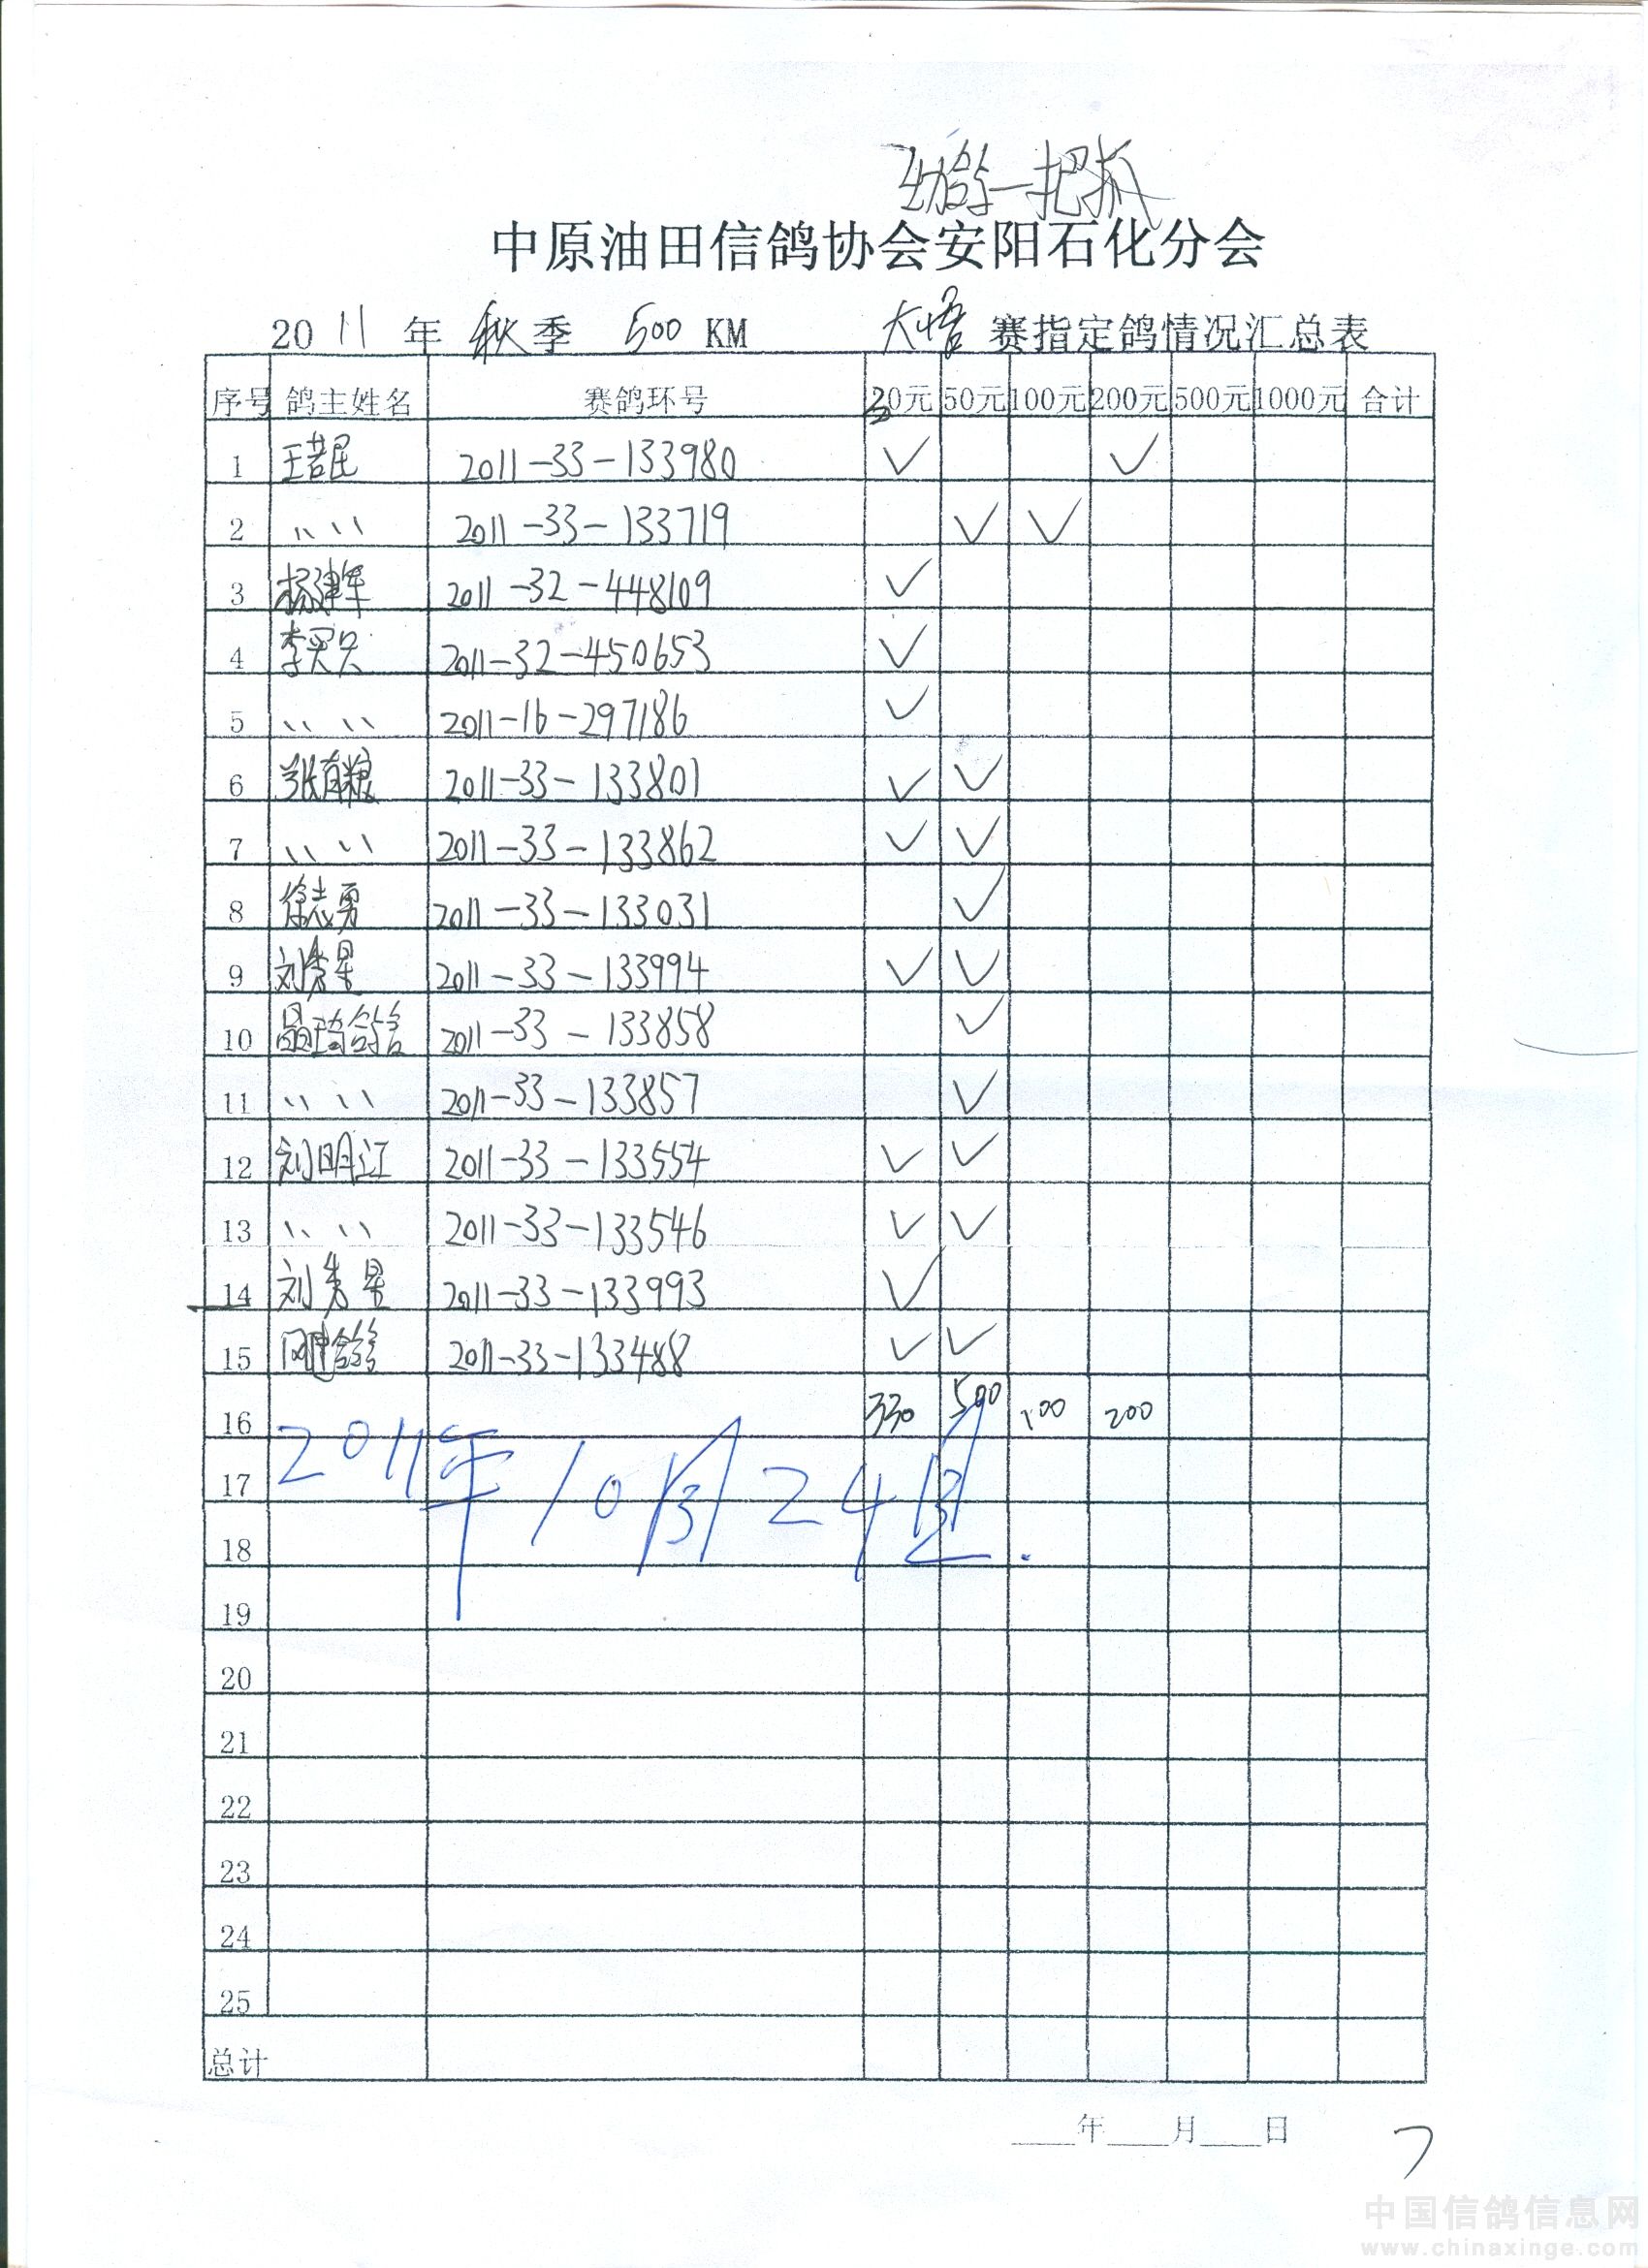 幼鸽一把抓
中原油田信鸽协会安阳石化分会
2011年 秋季 500KM 大悟 赛指定鸽情况汇总表
序号 鸽主姓名 赛鸽环号 30元 50元 100元 200元 500元 1000元 合计
1 王若昆 2011-33-133980 ✓ ✓
2 〃 〃 2011-33-133719 ✓ ✓
3 杨建军 2011-32-448109 ✓
4 李 2011-32-450653 ✓
5 〃 〃 2011-16-297186 ✓
6 张有粮 2011-33-133801 ✓ ✓
7 〃 〃 2011-33-133862 ✓ ✓
8 徐志勇 2011-33-133031 ✓
9 刘秀星 2011-33-133994 ✓ ✓
10 晶琦鸽舍 2011-33-133858 ✓
11 〃 〃 2011-33-133857 ✓
12 刘明江 2011-33-133554 ✓ ✓
13 〃 〃 2011-33-133546 ✓ ✓
14 刘秀星 2011-33-133993 ✓
15 2011-33-133488 ✓ ✓
16 330 500 100 200
17 2011年10月24日.
18
19
20
21
22
23
24
25
总计
___年___月___日
7
中国信鸽信息网
www.chinaxinge.com